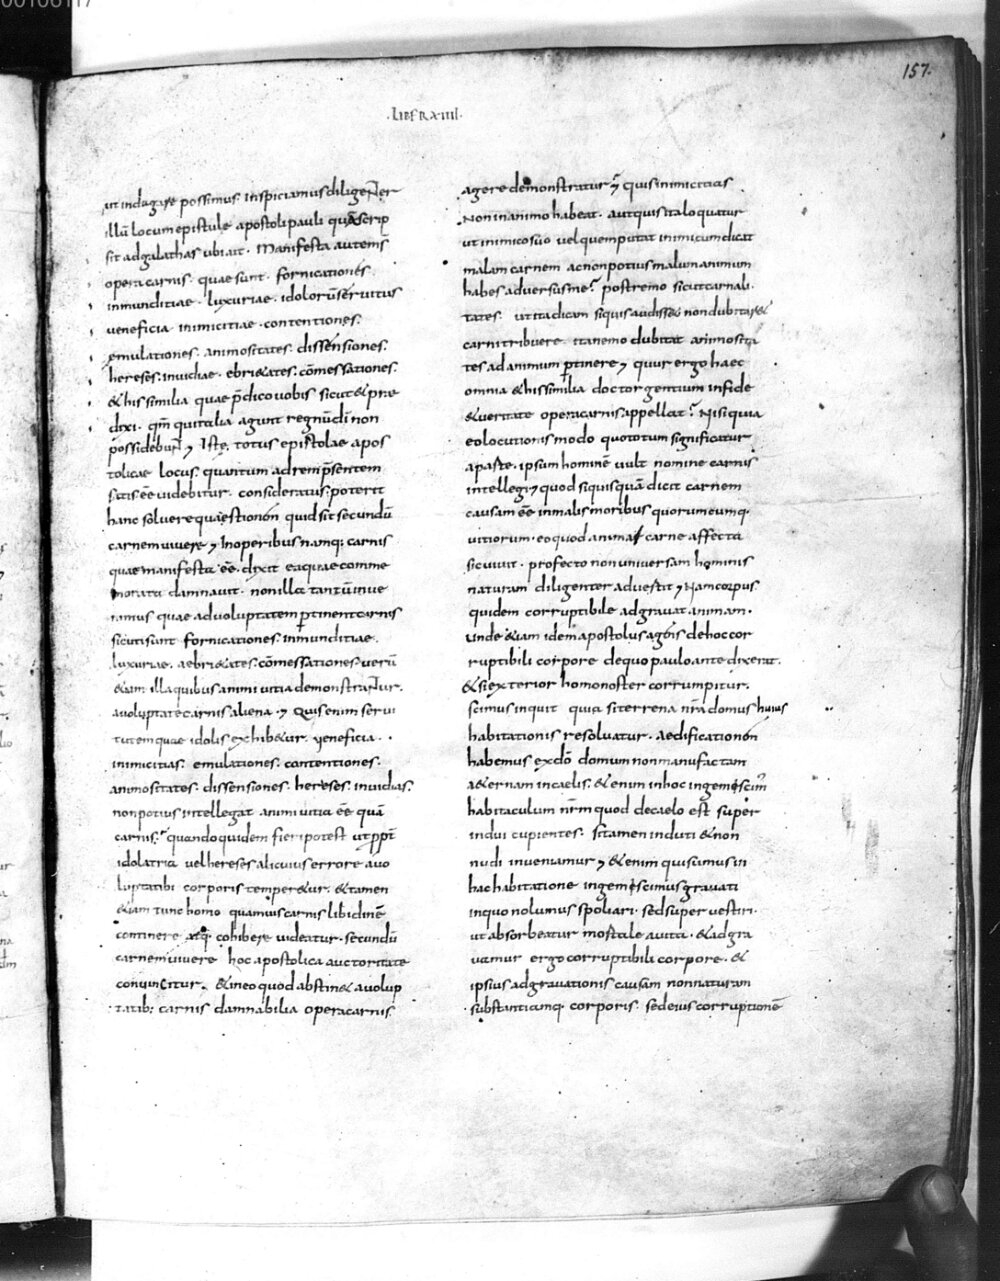 00106117
157.
·LIBER·XIIII·
ut indagare possimus. Inspiciamus diligenter
illū locum epistule apostoli pauli quā scrip
sit ad galathas ubi ait. Manifesta autem s̄
opera carnis. quae sunt. fornicationes.
inmunditiae. luxuriae. idolorū seruitus
ueneficia inimicitiae. contentiones.
emulationes. animositates. dissensiones.
hereses. inuidiae. ebri&ates. cōmessationes.
& his similia quae p̄dico uobis sicut & prae
dixi. qm̄ qui talia agunt regnū dī non
possidebunt; Iste totus epistolae apos
tolicae locus. quantum ad rem p̄sentem
satis eē uidebitur. consideratus poterit
hanc soluere quaestionem quid sit secundū
carnem uiuere; In operibus namq; carnis
quae manifesta eē. dixit eaquae comme
morata damnauit. non illa tantū inue
nimus quae ad uoluptatem pertinent carnis
sicuti sunt fornicationes. inmunditiae.
luxuriae. aebri&ates. cōmessationes. uerū
&iam illa quibus animi uitia demonstrantur.
a uoluptate carnis aliena; Quis enim serui
tutem quae idolis exhib&ur. ueneficia.
inimicitias. emulationes. contentiones.
animositates. dissensiones. hereses. inuidias.
non potius intellegat animi uitia eē quā
carnis. quandoquidem fieri potest ut ppt̄
idolatria uel hereses alicuius errore a uo
luptatibi corporis temper&ur. & tamen
&iam tunc homo quamuis carnis libidinē
continere atq; cohibere uideatur. secundū
carnem uiuere hoc apostolica auctoritate
conuincitur. & in eo quod abstin& a uolup
tatib; carnis damnabilia opera carnis
agere demonstratur; quis inimicitias
Non in animo habeat. aut quis ita loquatur
ut inimico suo uel quem putat inimicum dicat
malam carnem ac non potius malum animum
habes aduersus me? postremo sicut carnali
tates. ut ita dicam siquis audiss& non dubitar&
carni tribuere. ita nemo dubitat animosita
tes ad animum pertinere; quur ergo haec
omnia & his similia doctor gentium in fide
& ueritate opera carnis appellat? Nisi quia
eo locutionis modo quo totum significatur
a parte. ipsum hominē uult nomine carnis
intellegi; quod si quisquā dicit carnem
causam eē in malis moribus quorumcumq;
uitiorum. eo quod anima carne affecta
sic uiuit. profecto non uniuersam hominis
naturam diligenter aduertit; Nam corpus
quidem corruptibile adgrauat animam.
Unde &iam idem apostolus agens de hoc cor
ruptibili corpore de quo paulo ante dixerat.
& si exterior homo noster corrumpitur.
scimus inquit quia si terrena nr̄a domus huius
habitationis resoluatur. aedificationem
habemus ex dō domum non manufactam
a&ernam in caelis. & enim in hoc ingemescim'
habitaculum nr̄m quod de caelo est super
indui cupientes. si tamen induti & non
nudi inueniamur; & enim qui sumus in
hac habitatione ingemescimus grauati
in quo nolumus spoliari. sed super uestiri.
ut absorbeatur mortale a uita. & adgra
uamur ergo corruptibili corpore. &
ipsius adgrauationis causam non naturam
substantiamq; corporis. sed eius corruptionē